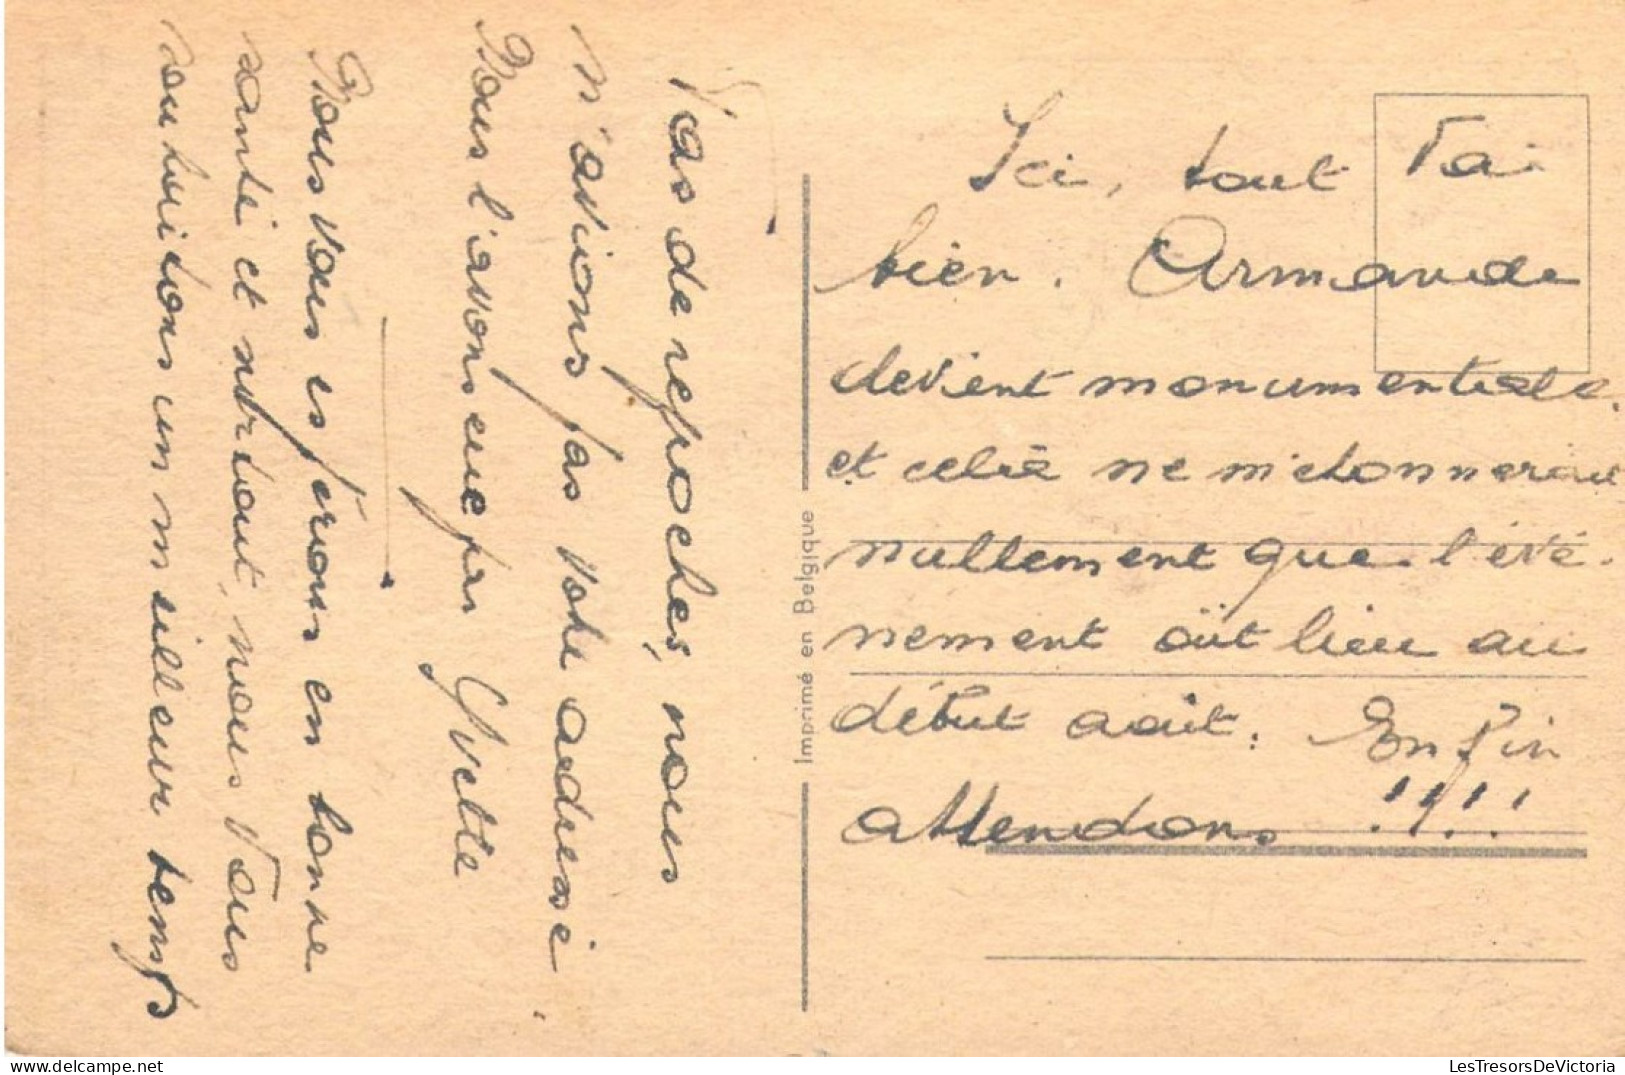 Pas de reproches, nous
n'avions pas votre adresse,
Nous l'avons eue par Yvette
Nous vous espérons en bonne
santé et surtout, nous vous
souhaitons un meilleur temps
Imprimé en Belgique
Ici, tout va
bien. Armande
devient monumentale.
et cela ne m'etonnerait
nullement que l'évé-
nement eût lieu au
début août. Enfin
attendons !!!!
LesTresorsDeVictoria.com